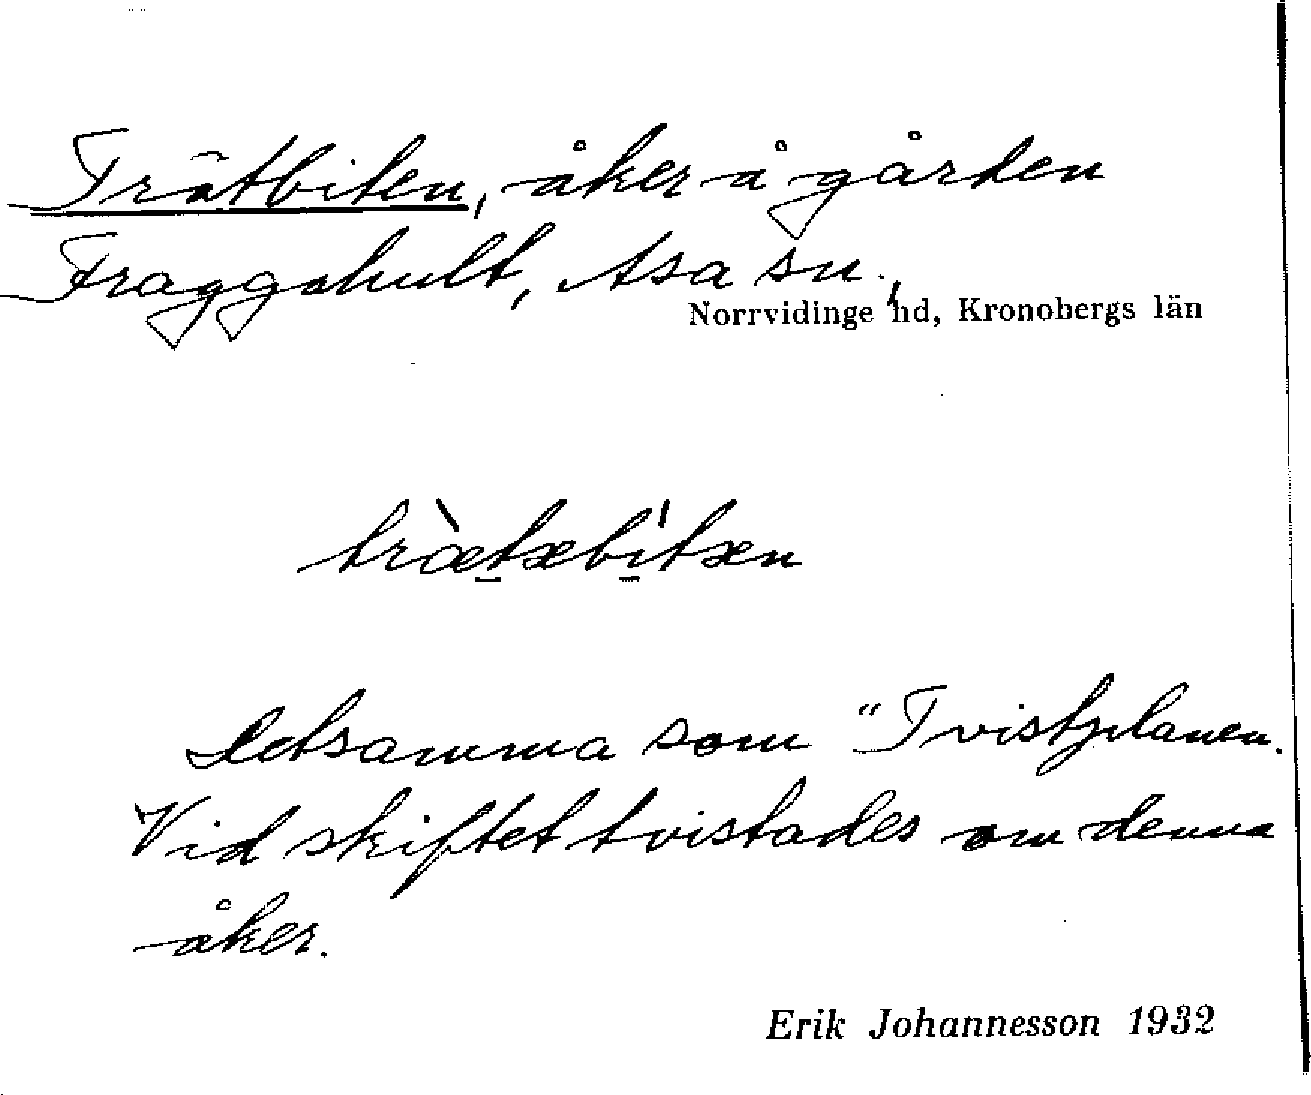 Trätbiten, åker å gården
Fraggahult, Asa sn.,
Norrvidinge hd, Kronobergs län
træ̀tæbi̍tæn
Detsamma som "Tvistplanen.
Vid skiftet tvistades om denna
åker.
Erik Johannesson 1932